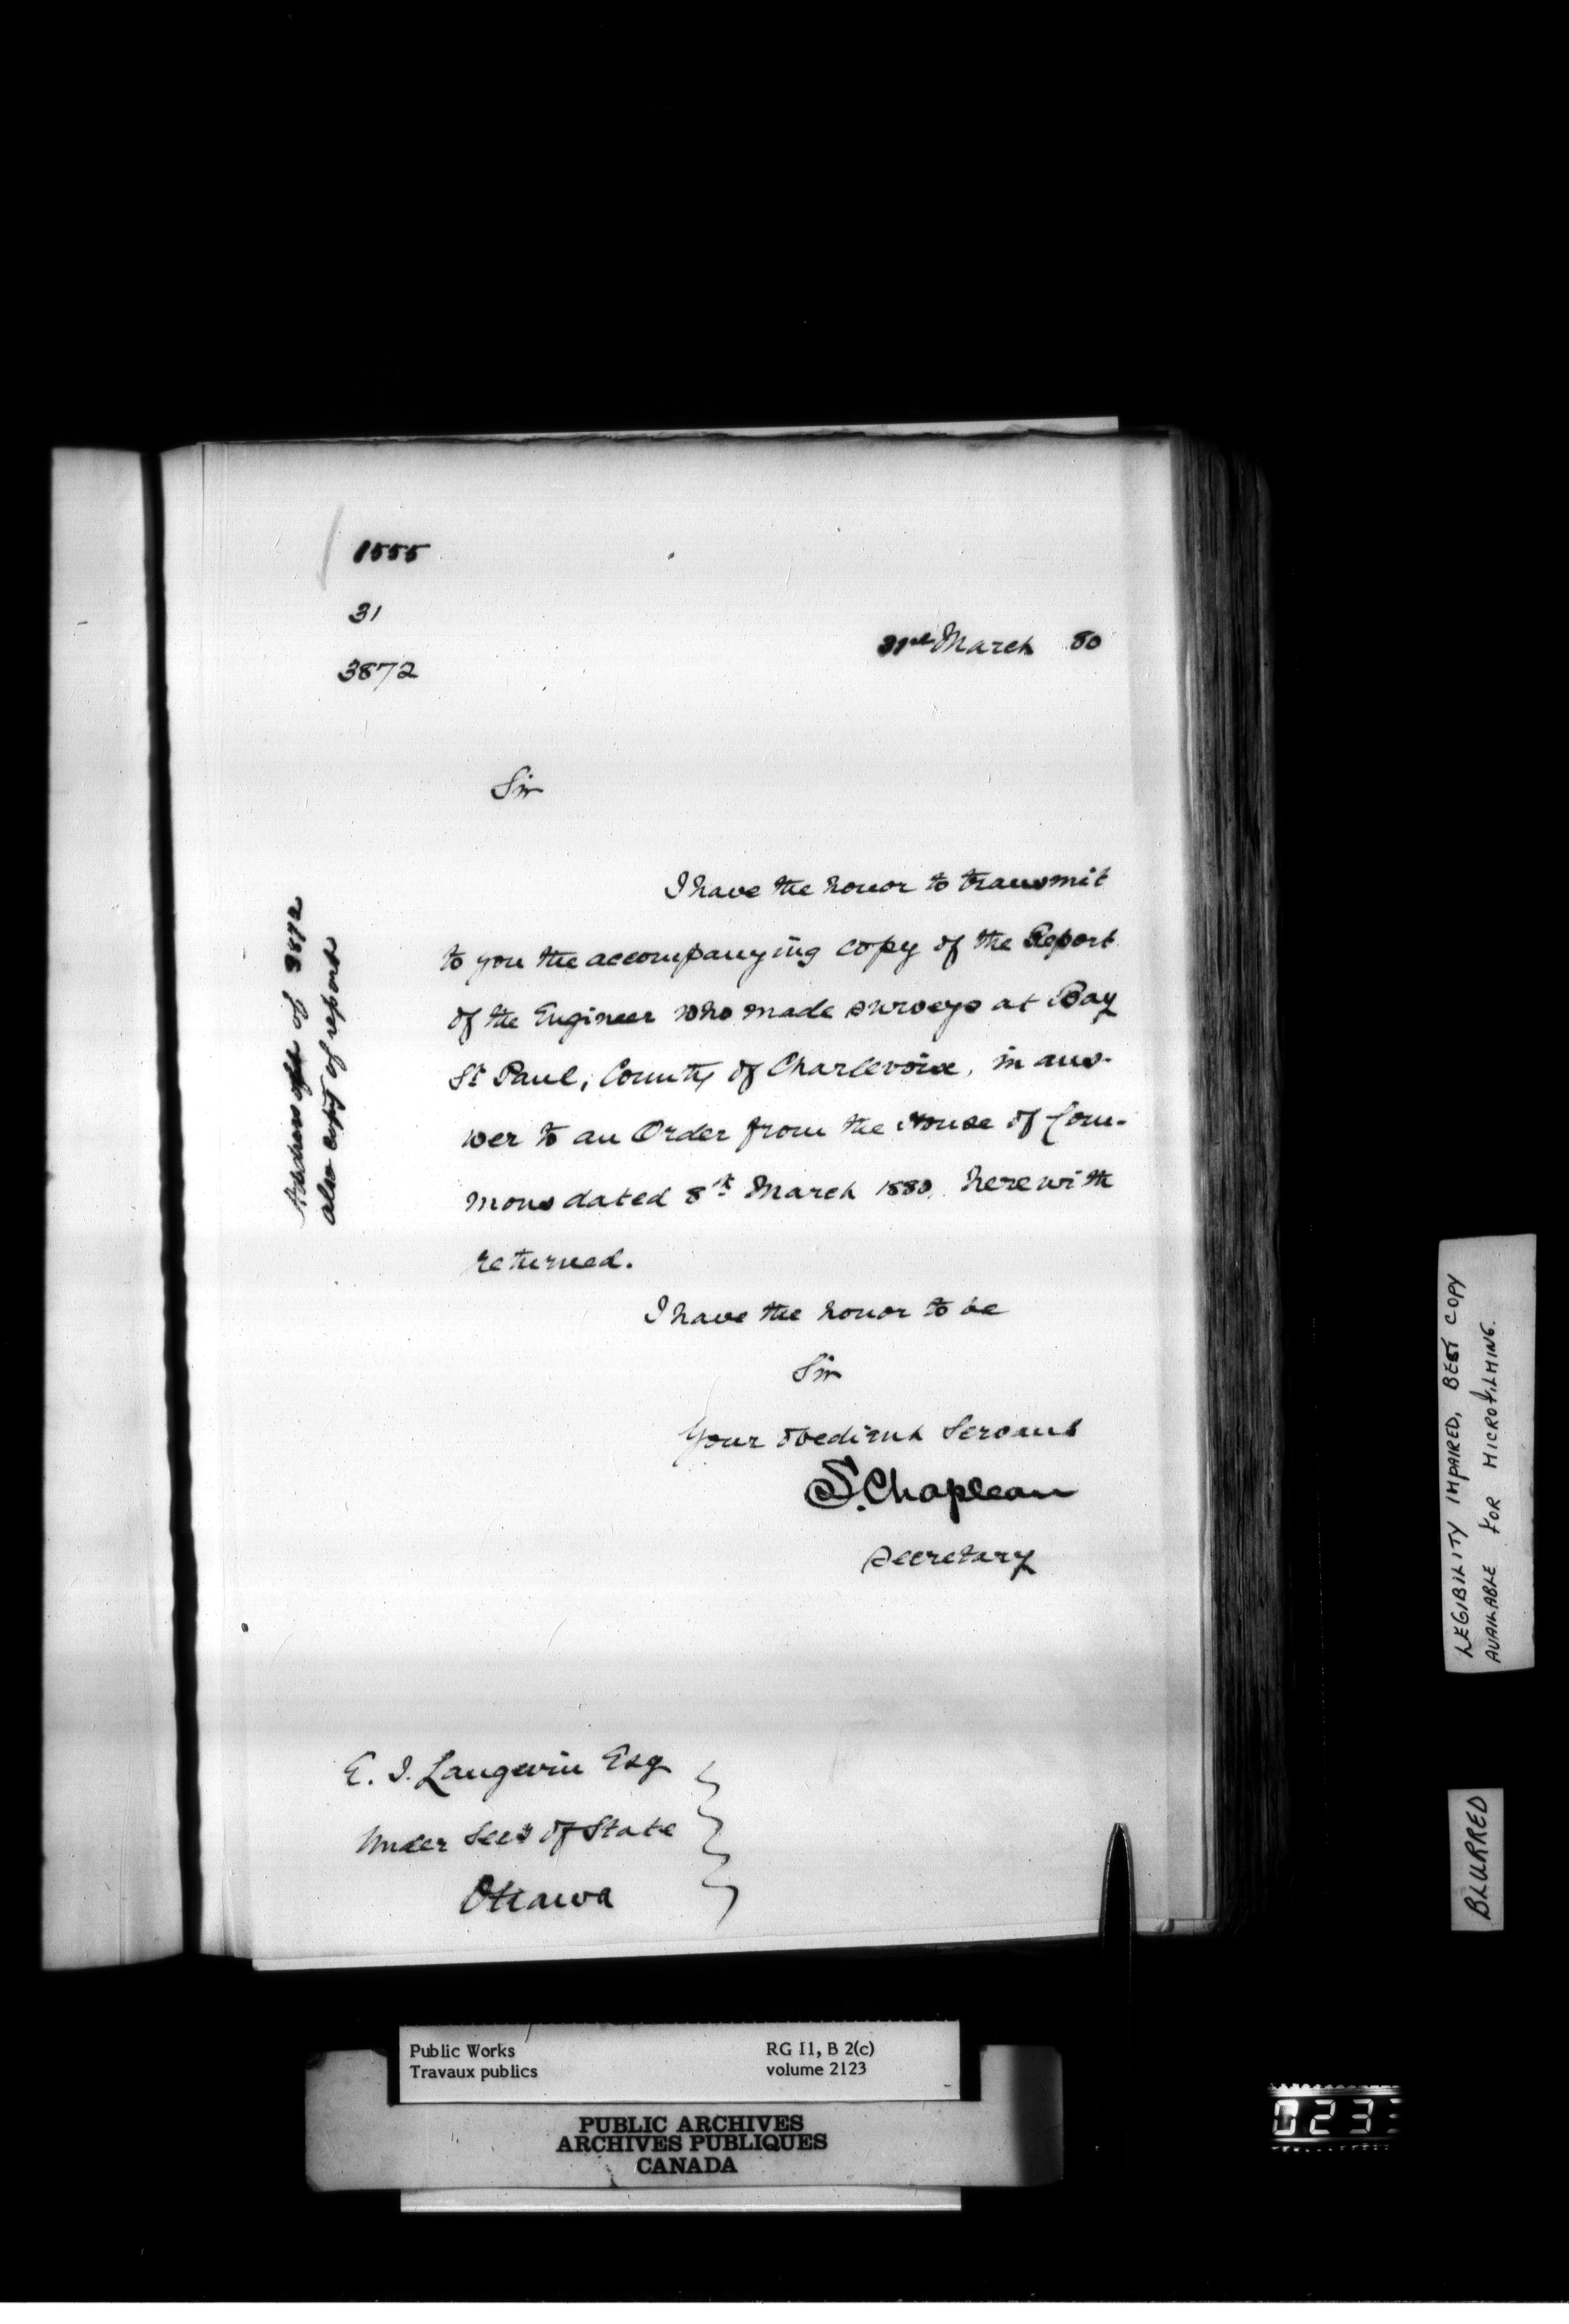 1555
31
3872
31st March 80
Sir
I have the honor to transmit
to you the accompanying copy of the Report
of the Engineer who made surveys at Bay
St Paul, County of Charlevoix, in ans-
wer to an Order from the House of Com-
mons dated 8th March 1880, herewith
returned.
I have the honor to be
Sir
Your obedient Servant
S. Chapleau
Secretary
E. J. Langevin Esq
Under Secy of State
Ottawa
of 3872
also copy of report
LEGIBILITY IMPAIRED, BEST COPY
AVAILABLE FOR MICROFILMING.
BLURRED
Public Works
Travaux publics
RG 11, B 2(c)
volume 2123
PUBLIC ARCHIVES
ARCHIVES PUBLIQUES
CANADA
023